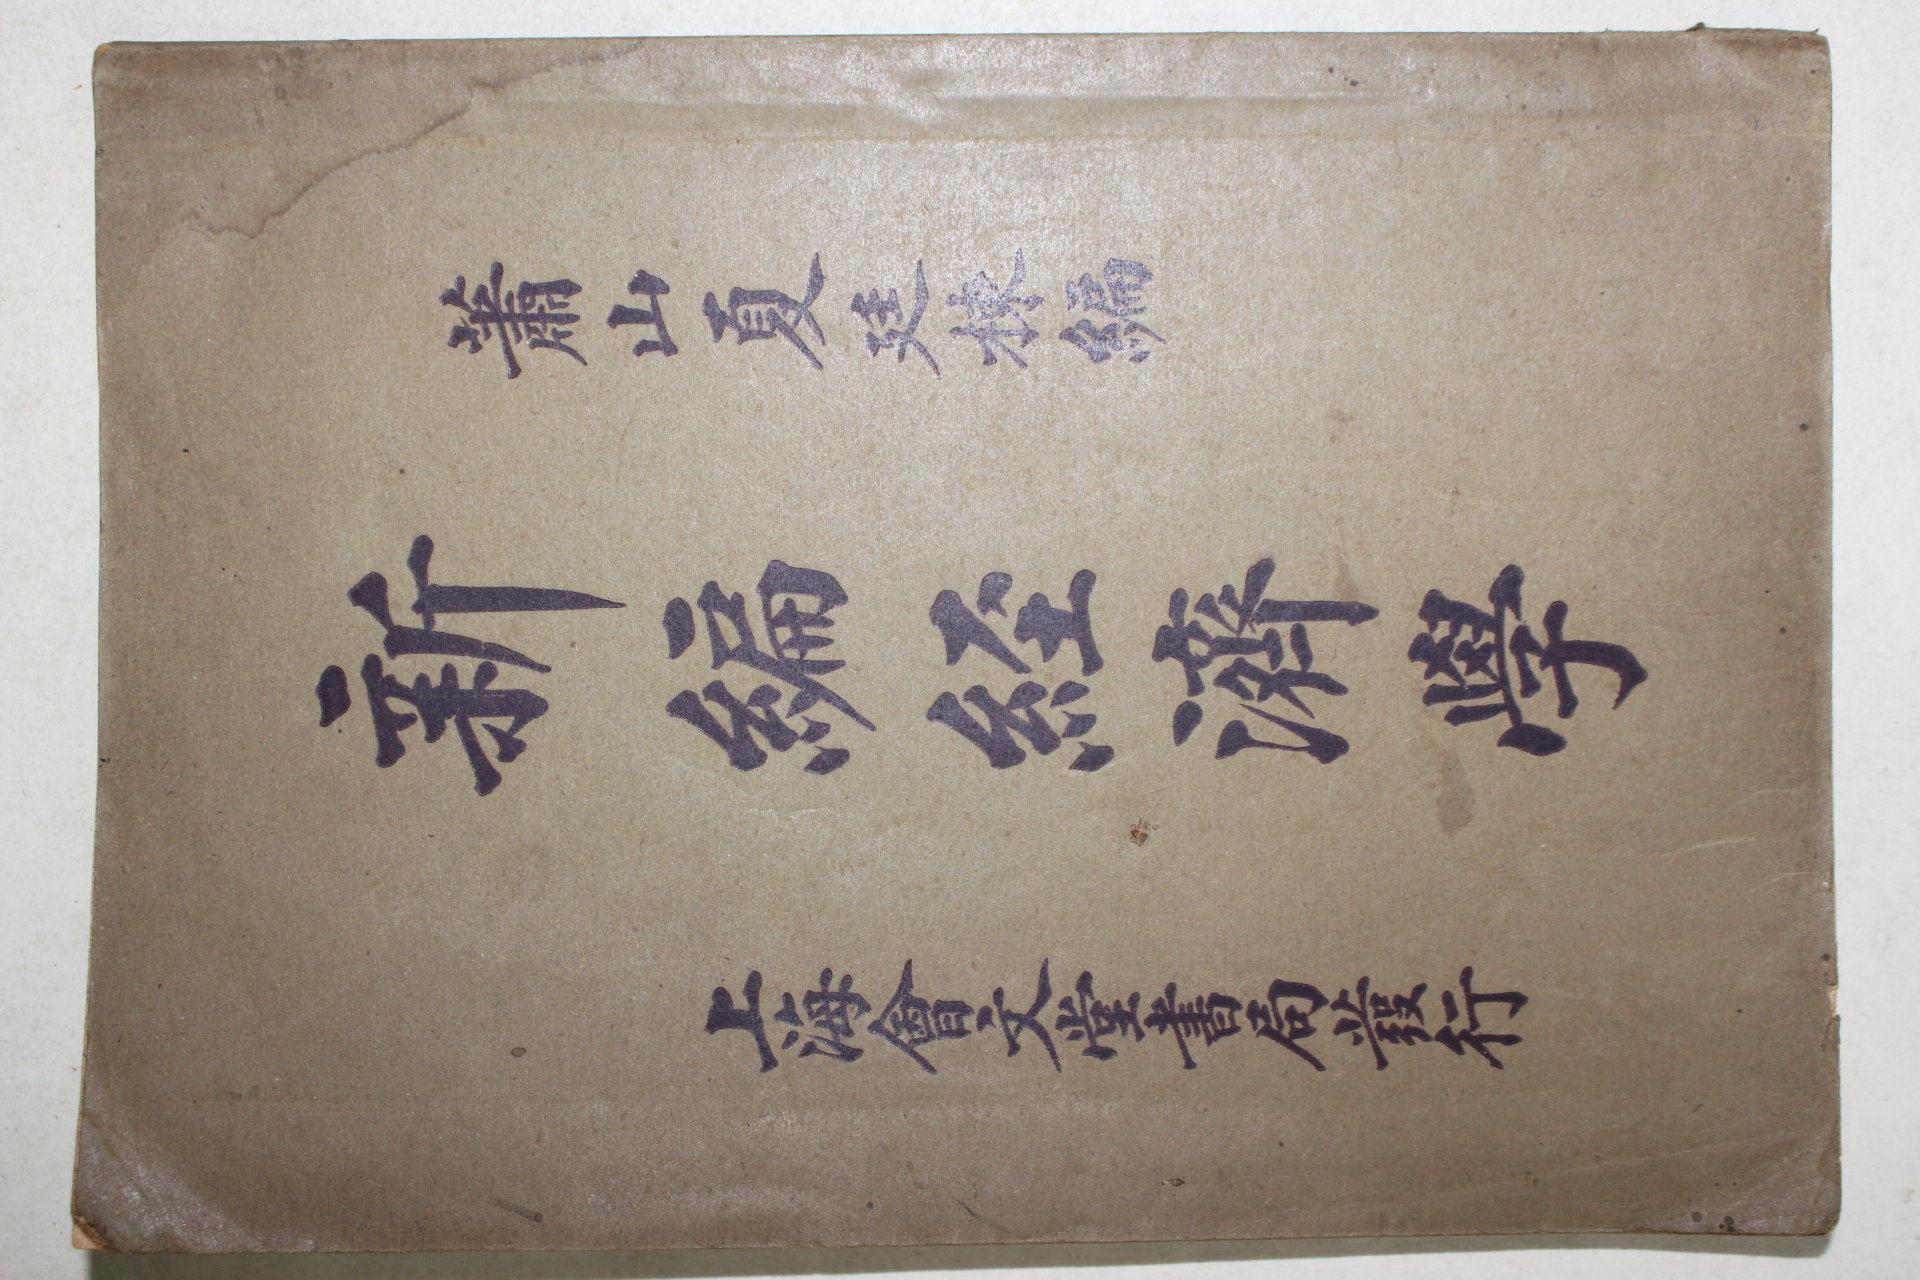 蕭山夏廷楨編
新編經濟學
上海會文堂書局發行